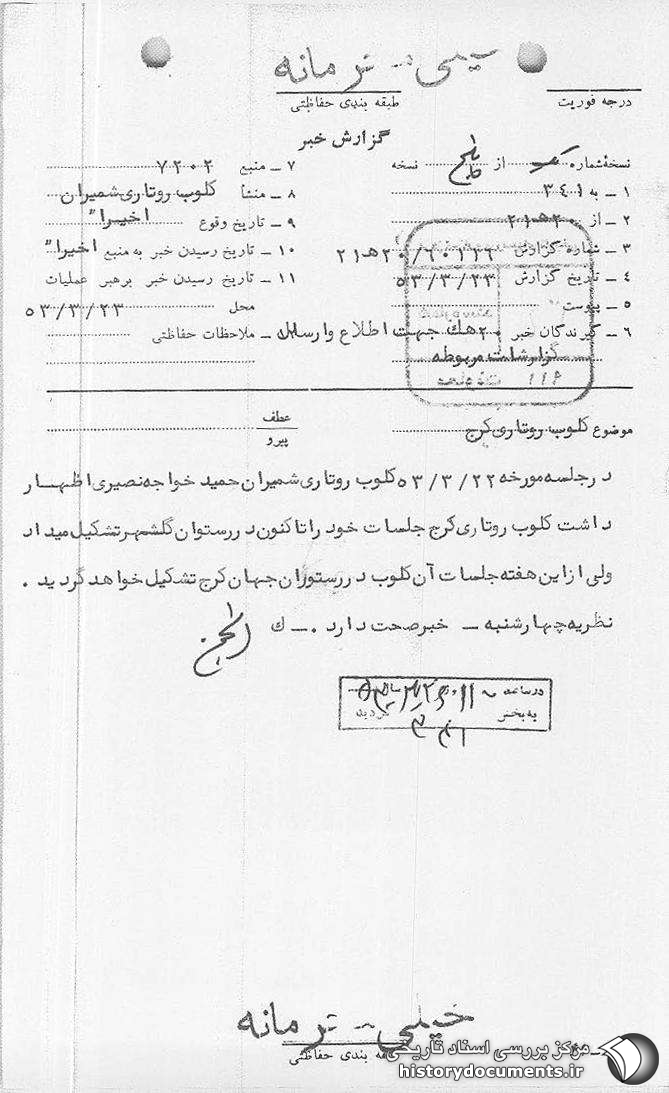 خیلی - ترمانه
درجه فوریت
طبقه بندی حفاظتی
گزارش خبر
نسخهٔ شماره یک از پنج نسخه
۱ ـ به ۳۴۱
۲ ـ از ۲۰ه۲۱
۳ ـ شماره گزارش
۴ ـ تاریخ گزارش ۵۳/۳/۲۳
۵ ـ پیوست
۶ ـ گیرندگان خبر ۲۰ه ک جهت اطلاع و ارسال
گزارشات مربوطه
۷ ـ منبع ۷۲۰۲
۸ ـ منشأ کلوب روتاری شمیران
۹ ـ تاریخ وقوع اخیرا"
۱۰ ـ تاریخ رسیدن خبر به منبع اخیرا"
۱۱ ـ تاریخ رسیدن خبر برهبر عملیات
محل ۵۳/۳/۲۳
ـ ملاحظات حفاظتی
موضوع کلوب روتاری کرج
عطف
پیرو
در جلسه مورخه ۵۳/۳/۲۲ کلوب روتاری شمیران حمید خواجه نصیری اظهار
داشت کلوب روتاری کرج جلسات خود را تاکنون در رستوان گلشهر تشکیل میداد
ولی از این هفته جلسات آن کلوب در رستوران جهان کرج تشکیل خواهد گردید .
نظریه چهارشنبه ـ خبر صحت دارد .ـ ک
در ساعت
به بخش
گردید
خیلی - ترمانه
طبقه بندی حفاظتی
مرکز بررسی اسناد تاریخی
historydocuments.ir